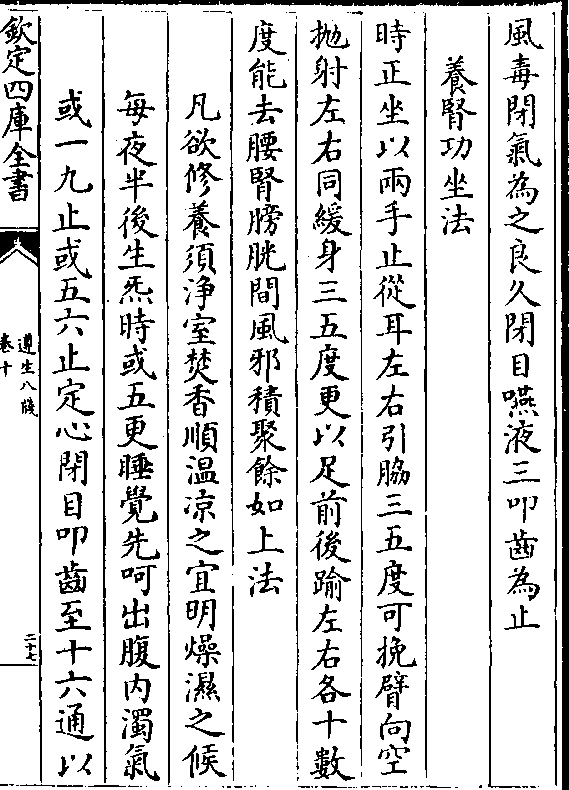 風毒閉氣為之良久閉目嚥液三叩齒為止
養腎功坐法
時正坐以兩手止從耳左右引脇三五度可挽臂向空
拋射左右同緩身三五度更以足前後踰左右各十數
度能去腰腎膀胱間風邪積聚餘如上法
凡欲修養須淨室焚香順温凉之宜明燥濕之候
每夜半後生炁時或五更睡覺先呵出腹内濁氣
或一九止或五六止定心閉目叩齒至十六通以
欽定四庫全書
遵生八牋
卷十
二十七